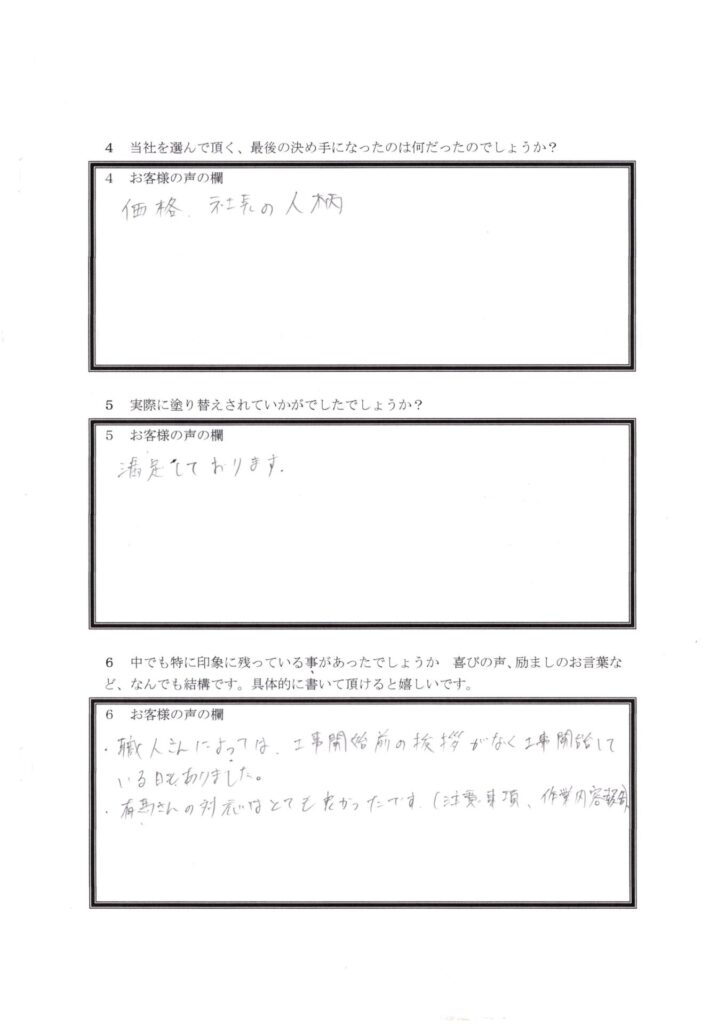 4 当社を選んで頂く、最後の決め手になったのは何だったのでしょうか？
4 お客様の声の欄
価格、社長の人柄
5 実際に塗り替えされていかがでしたでしょうか？
5 お客様の声の欄
満足しております。
6 中でも特に印象に残っている事があったでしょうか 喜びの声、励ましのお言葉な
ど、なんでも結構です。具体的に書いて頂けると嬉しいです。
6 お客様の声の欄
・職人さんによっては、工事開始前の挨拶がなく工事開始して
いる日もありました。
・有馬さんの対応はとても良かったです。(注意事項、作業内容報告)